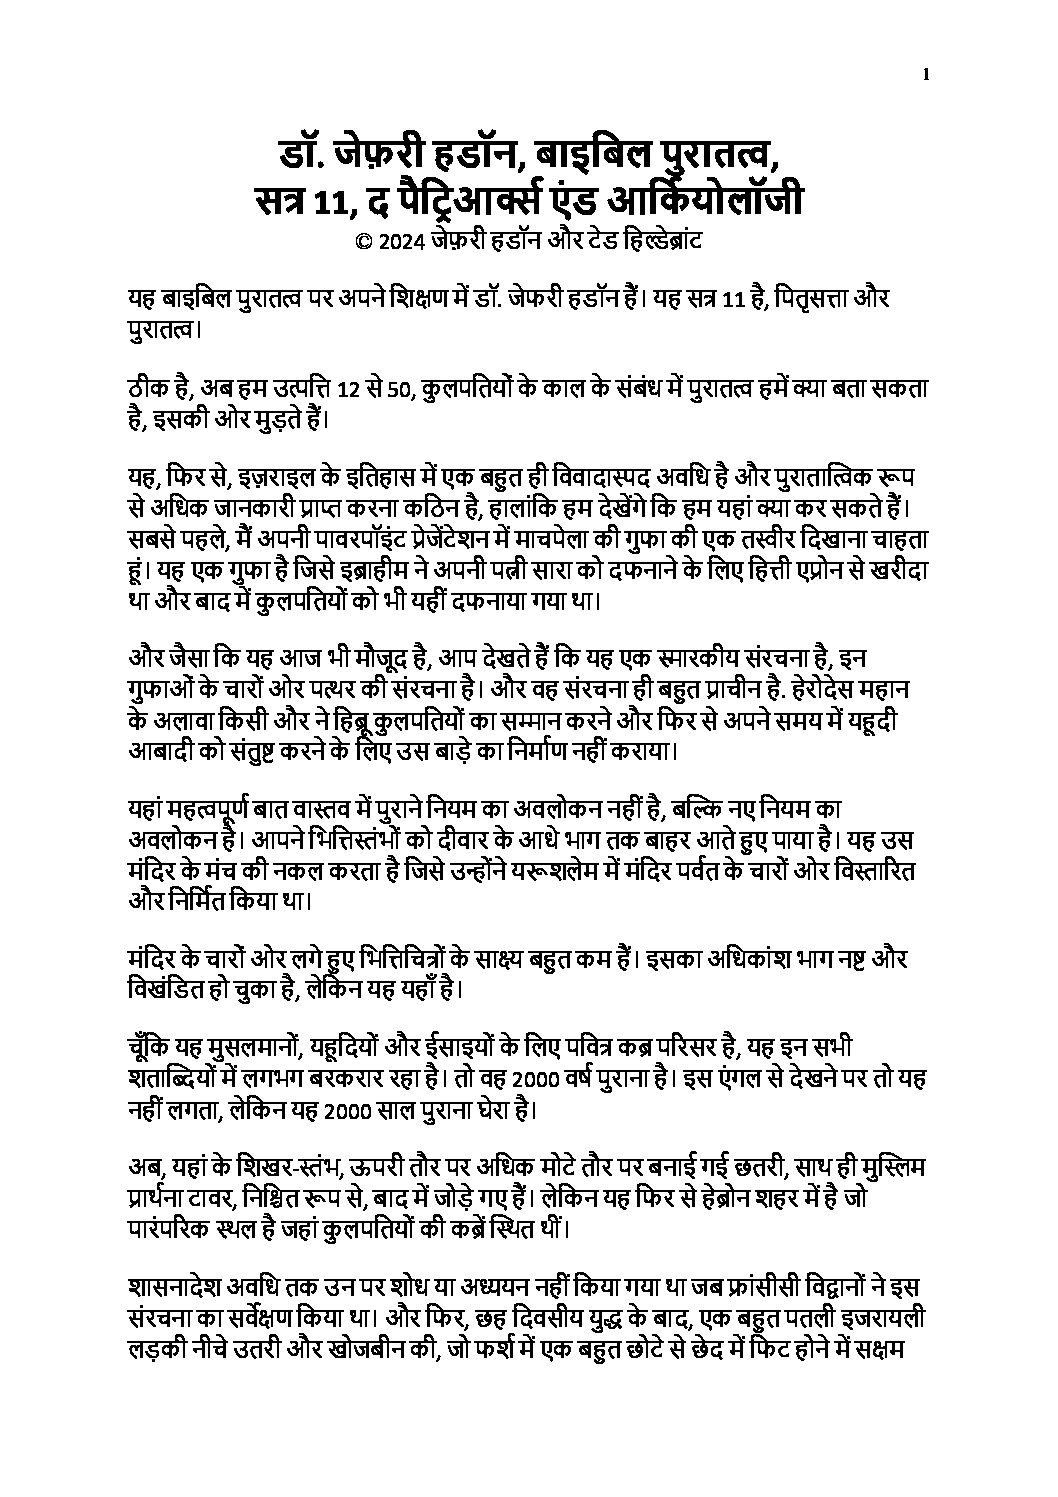 1
डॉ. जेफ़री हडॉन, बाइबिल पुरातत्व,
सत्र 11, द पैट्रिआर्क्स एंड आर्कियोलॉजी
© 2024 जेफ़री हडॉन और टेड हिल्डेब्रांट
यह बाइबिल पुरातत्व पर अपने शिक्षण में डॉ. जेफरी हडॉन हैं। यह सत्र 11 है, पितृसत्ता और
पुरातत्व।
ठीक है, अब हम उत्पत्ति 12 से 50, कुलपतियों के काल के संबंध में पुरातत्व हमें क्या बता सकता
है, इसकी ओर मुड़ते हैं।
यह, फिर से, इज़राइल के इतिहास में एक बहुत ही विवादास्पद अवधि है और पुरातात्विक रूप
से अधिक जानकारी प्राप्त करना कठिन है, हालांकि हम देखेंगे कि हम यहां क्या कर सकते हैं।
सबसे पहले, मैं अपनी पावरपॉइंट प्रेजेंटेशन में माचपेला की गुफा की एक तस्वीर दिखाना चाहता
हूं। यह एक गुफा है जिसे इब्राहीम ने अपनी पत्नी सारा को दफनाने के लिए हित्ती एप्रोन से खरीदा
था और बाद में कुलपतियों को भी यहीं दफनाया गया था।
और जैसा कि यह आज भी मौजूद है, आप देखते हैं कि यह एक स्मारकीय संरचना है, इन
गुफाओं के चारों ओर पत्थर की संरचना है। और वह संरचना ही बहुत प्राचीन है. हेरोदेस महान
के अलावा किसी और ने हिब्रू कुलपतियों का सम्मान करने और फिर से अपने समय में यहूदी
आबादी को संतुष्ट करने के लिए उस बाड़े का निर्माण नहीं कराया।
यहां महत्वपूर्ण बात वास्तव में पुराने नियम का अवलोकन नहीं है, बल्कि नए नियम का
अवलोकन है। आपने भित्तिस्तंभों को दीवार के आधे भाग तक बाहर आते हुए पाया है। यह उस
मंदिर के मंच की नकल करता है जिसे उन्होंने यरूशलेम में मंदिर पर्वत के चारों ओर विस्तारित
और निर्मित किया था।
मंदिर के चारों ओर लगे हुए भित्तिचित्रों के साक्ष्य बहुत कम हैं। इसका अधिकांश भाग नष्ट और
विखंडित हो चुका है, लेकिन यह यहाँ है।
चूँकि यह मुसलमानों, यहूदियों और ईसाइयों के लिए पवित्र कब्र परिसर है, यह इन सभी
शताब्दियों में लगभग बरकरार रहा है। तो वह 2000 वर्ष पुराना है। इस एंगल से देखने पर तो यह
नहीं लगता, लेकिन यह 2000 साल पुराना घेरा है।
अब, यहां के शिखर-स्तंभ, ऊपरी तौर पर अधिक मोटे तौर पर बनाई गई छतरी, साथ ही मुस्लिम
प्रार्थना टावर, निश्चित रूप से, बाद में जोड़े गए हैं। लेकिन यह फिर से हेब्रोन शहर में है जो
पारंपरिक स्थल है जहां कुलपतियों की कब्रें स्थित थीं।
शासनादेश अवधि तक उन पर शोध या अध्ययन नहीं किया गया था जब फ्रांसीसी विद्वानों ने इस
संरचना का सर्वेक्षण किया था। और फिर, छह दिवसीय युद्ध के बाद, एक बहुत पतली इजरायली
लड़की नीचे उतरी और खोजबीन की, जो फर्श में एक बहुत छोटे से छेद में फिट होने में सक्षम